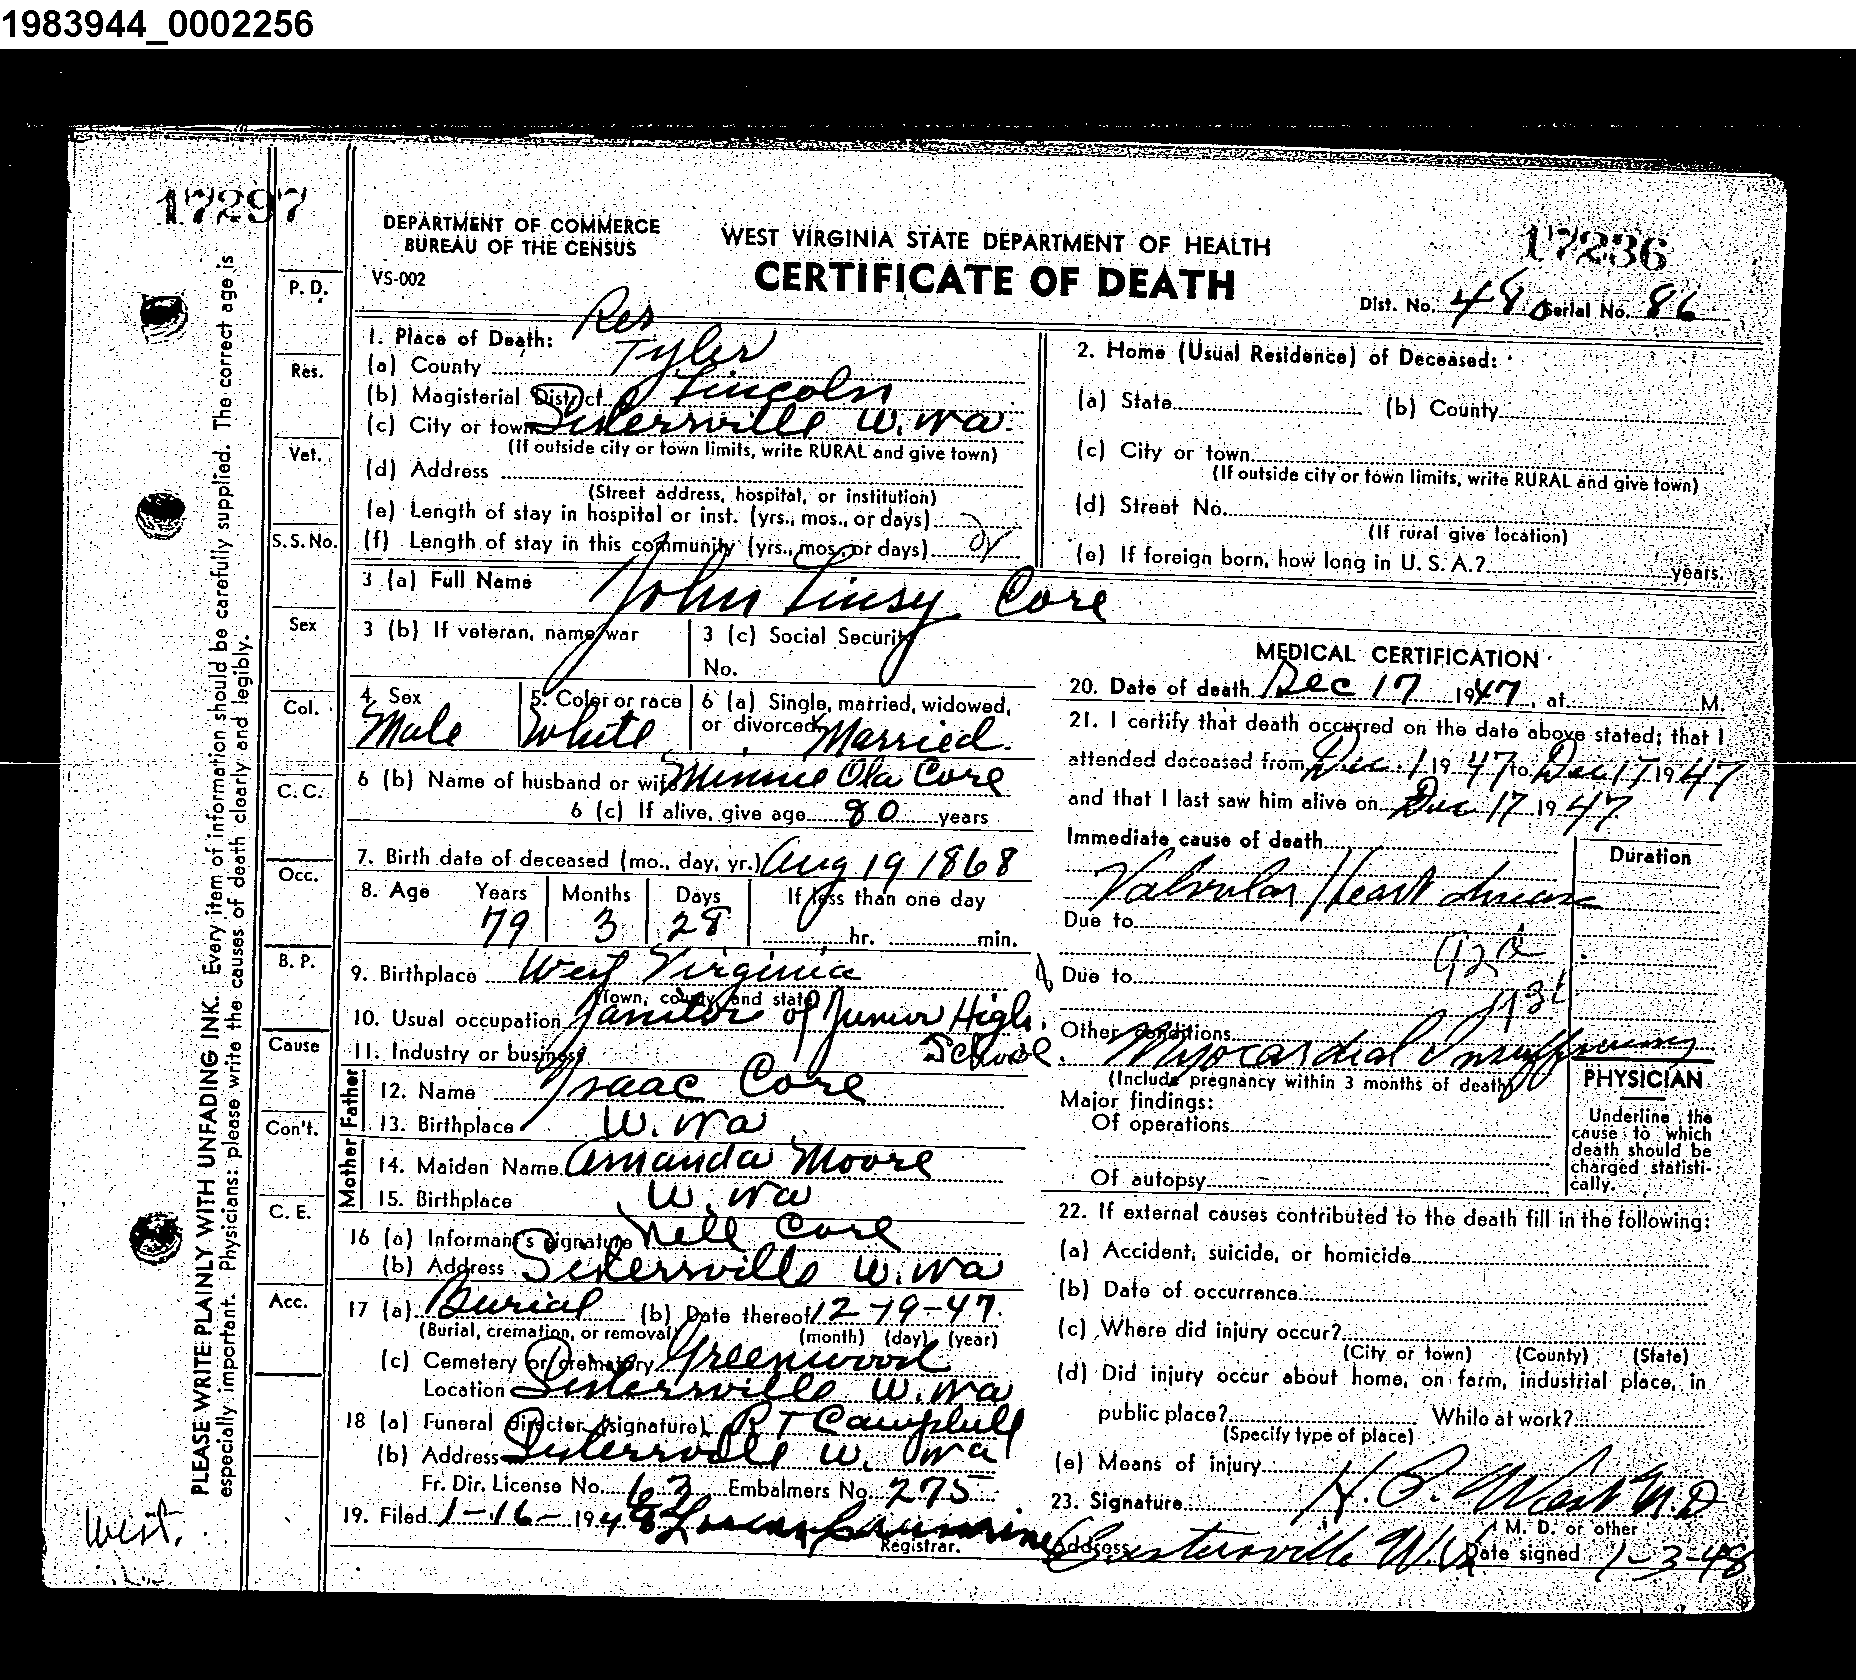 1983944_0002256
17297
17236
DEPARTMENT OF COMMERCE
BUREAU OF THE CENSUS
VS-002
WEST VIRGINIA STATE DEPARTMENT OF HEALTH
CERTIFICATE OF DEATH
Dist. No. 480 Serial No. 86
PLEASE WRITE PLAINLY WITH UNFADING INK. Every item of information should be carefully supplied. The correct age is
especially important. Physicians: please write the causes of death clearly and legibly.
West.
P. D.
Res.
Vet.
S. S. No.
Sex
Col.
C. C.
Occ.
B. P.
Cause
Con't.
C. E.
Acc.
Res
1. Place of Death:
(a) County Tyler
(b) Magisterial District Lincoln
(c) City or town Sistersville W. Va.
(If outside city or town limits, write RURAL and give town)
(d) Address
(Street address, hospital, or institution)
(e) Length of stay in hospital or inst. (yrs., mos., or days)
(f) Length of stay in this community (yrs., mos. or days)
2. Home (Usual Residence) of Deceased:
(a) State (b) County
(c) City or town
(If outside city or town limits, write RURAL and give town)
(d) Street No.
(If rural give location)
(e) If foreign born, how long in U. S. A.? years.
3 (a) Full Name John Linsy Core
3 (b) If veteran, name war
3 (c) Social Security
No.
4. Sex Male
5. Color or race White
6 (a) Single, married, widowed,
or divorced Married.
6 (b) Name of husband or wife Minnie Ola Core
6 (c) If alive, give age 80 years
7. Birth date of deceased (mo., day, yr.) Aug 19 1868
8. Age Years Months Days If less than one day
79 3 28 hr. min.
9. Birthplace West Virginia
(Town, county, and state)
10. Usual occupation Janitor of Junior High
School.
11. Industry or business
Father
12. Name Isaac Core
13. Birthplace W. Va
Mother
14. Maiden Name Amanda Moore
15. Birthplace W. Va
16 (a) Informant's signature Nell Core
(b) Address Sistersville W. Va
17 (a) Burial (b) Date thereof 12-19-47.
(Burial, cremation, or removal) (month) (day) (year)
(c) Cemetery or crematory Greenwood
Location Sistersville W. Va
18 (a) Funeral director (signature) R T Campbell
(b) Address Sistersville W. Va
Fr. Dir. License No. 63 Embalmers No. 275
19. Filed 1-16- 1948
Registrar.
MEDICAL CERTIFICATION
20. Date of death Dec 17 1947, at M.
21. I certify that death occurred on the date above stated; that I
attended deceased from Dec. 1 1947 to Dec 17 1947
and that I last saw him alive on Dec 17 1947
Immediate cause of death
Duration
Valvular Heart disease
Due to
Due to
Other conditions Myocardial Insufficiency
(Include pregnancy within 3 months of death)
Major findings:
Of operations
Of autopsy
PHYSICIAN
Underline the
cause to which
death should be
charged statisti-
cally.
22. If external causes contributed to the death fill in the following:
(a) Accident, suicide, or homicide
(b) Date of occurrence
(c) Where did injury occur?
(City or town) (County) (State)
(d) Did injury occur about home, on farm, industrial place, in
public place? While at work?
(Specify type of place)
(e) Means of injury
23. Signature H. P. West M.D
M. D. or other
Address Sistersville W. Va Date signed 1-3-48